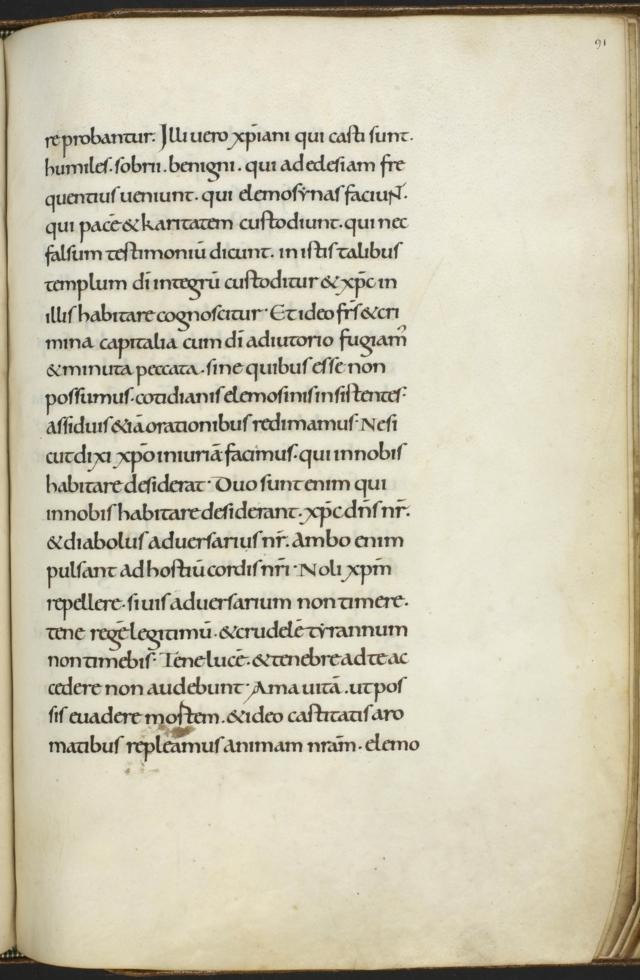 91
reprobantur. Illi uero xp̄iani qui casti sunt.
humiles. sobrii. benigni. qui ad edesiam fre
quentius ueniunt. qui elemosynas faciuɴ̄.
qui pacē & karitatem custodiunt. qui nec
falsum testimoniū dicunt. in istis talibus
templum dī integrū custoditur & xp̄c in
illis habitare cognoscitur. Et ideo fr̄s & cri
mina capitalia cum dī adiutorio fugiam̉
& minuta peccata. sine quibus esse non
possumus. cotidianis elemosinis insistentes.
assiduis & iā orationibus redimamus. Ne si
cut dixi xp̄o iniuriā facimus. qui in nobis
habitare desiderat. Duo sunt enim qui
in nobis habitare desiderant. xp̄c dn̄s nr̄.
& diabolus aduersarius nr̄. Ambo enim
pulsant ad hostiū cordis nr̄i. Noli xp̄m
repellere. si uis aduersarium non timere.
tene regē legitimū. & crudelē tyrannum
non timebis. Tene lucē. & tenebre ad te ac
cedere non audebunt. Ama uitā. ut pos
sis euadere mortem. & ideo castitatis aro
matibus repleamus animam nr̄am. elemo